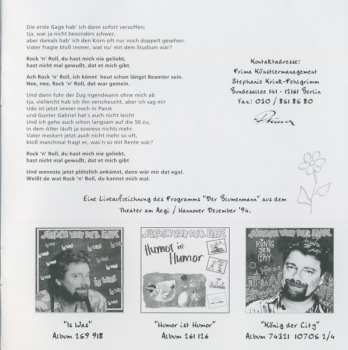 Die ersten Gage hab' ich dann sofort versoffen;
Tja, war ja nicht besonders schwer,
aber damals hab' ich den Korn oft nur noch doppelt gesehen.
Vater fragte bloß immer, was nu' mit dem Studium wär?
Rock 'n' Roll, du hast mich nie geliebt,
hast nicht mal gewußt, dat et mich gibt.
Ach Rock 'n' Roll, ich könnt' heut schon längst Beamter sein.
Nee, nee, Rock 'n' Roll, dat war gemein.
Und dann fuhr der Zug irgendwann ohne mich ab
tja, vielleicht hab ich ihn verscheucht, aber ich sag mir
Udo ist jetzt immer mich in Panik
und Gunter Gabriel hat's auch nicht leicht
Und ich gehe auch schon langsam auf die 50 zu,
in dem Alter läuft ja sowieso nichts mehr.
Vater meckert jetzt auch nicht mehr so oft,
bloß manchmal fragt er, was is so mit Rente wär?
Rock 'n' Roll, du hast mich nie geliebt,
hast nicht mal gewußt, dat et mich gibt.
Und wennste jetzt plötzlich ankämst, dann wär mir dat egal.
Weißt de wat Rock 'n' Roll, du kannst mich mal.
Kontaktadresse:
Prima Künstlermanagement
Stephanie Krink-Pehlgrimm
Bundesallee 141 - 12161 Berlin
Fax: 030 / 861 86 80
Eine Liveaufzeichnung des Programms "Der Blumenmann" aus dem
Theater am Aegi / Hannover Dezember '94.
Is Was
Humor ist
Humor
KÖNIG
DER
CITY
"Is Was"
Album 259 918
"Humor ist Humor"
Album 261 126
"König der City"
Album 74321 10706 2/4